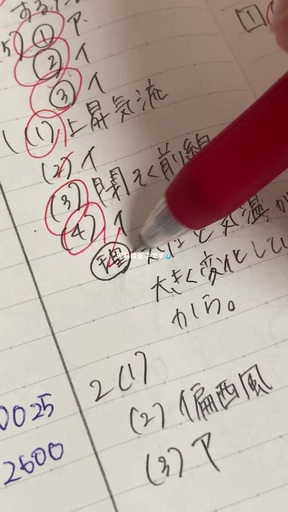 [1]
5) ① ア
② イ
③ イ
(1) 上昇気流
(2) イ
(3) 閉そく前線
(4) イ
理 気温が
大きく変化してい
から。
2 (1)
(2) 偏西風
(3) ア
0025
2600